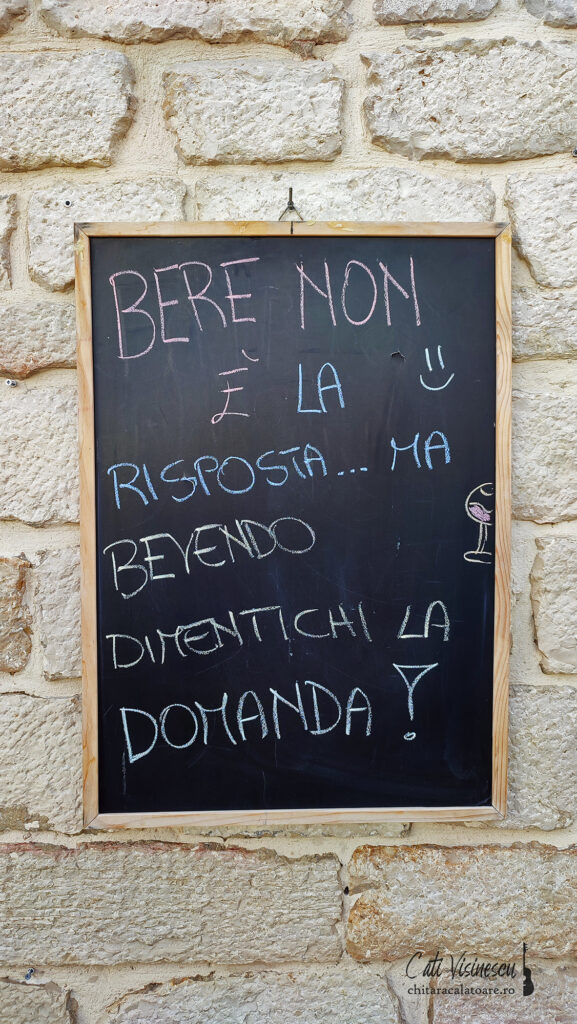 BERE NON
È LA
RISPOSTA... MA
BEVENDO
DIMENTICHI LA
DOMANDA!
Cati Visinescu
chitaracalatoare.ro